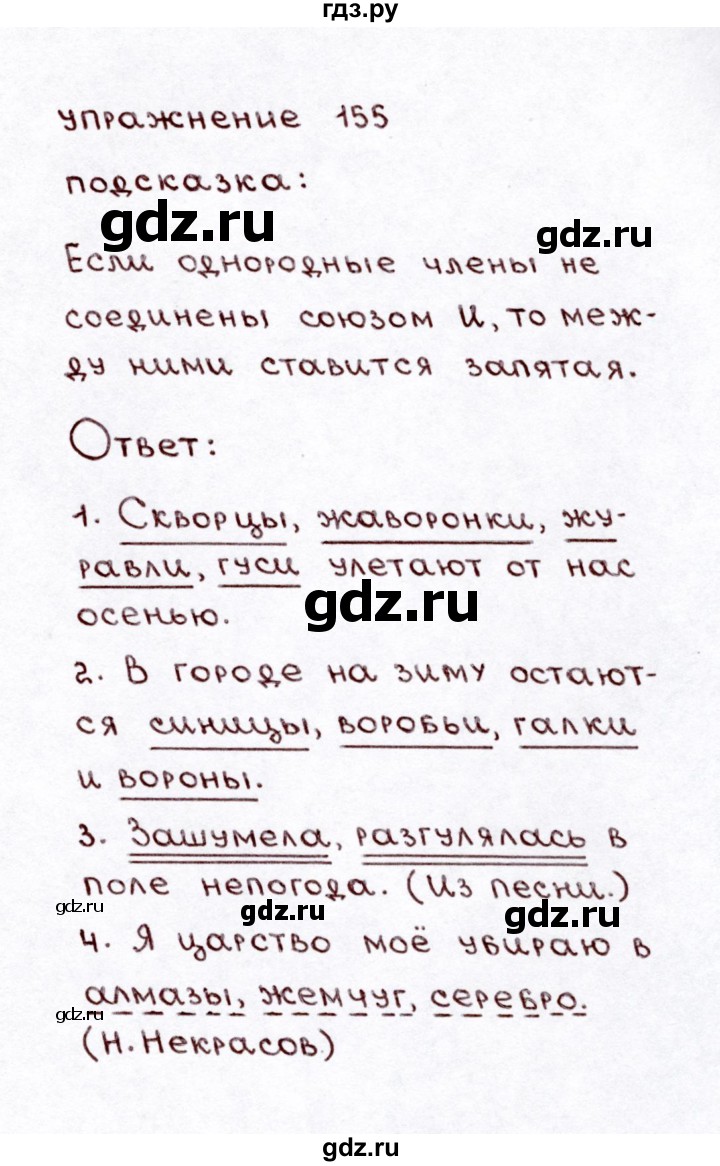 гдз.ру
упражнение 155
подсказка:
gdz.ru
gdz.ru
Если однородные члены не
соединены союзом И, то меж-
ду ними ставится запятая.
Ответ:
1. Скворцы, жаворонки, жу-
равли, гуси улетают от нас
gdz.ru
осенью.
2. В городе на зиму остают-
ся синицы, воробьи, галки
и вороны.
3. Зашумела, разгулялась в
поле непогода. (Из песни.)
gdz.ru
gdz.ru
gdz.ru
4. Я царство моё убираю в
алмазы, жемчуг, серебро.
gdz.ru
(Н. Некрасов)
gdz.ru